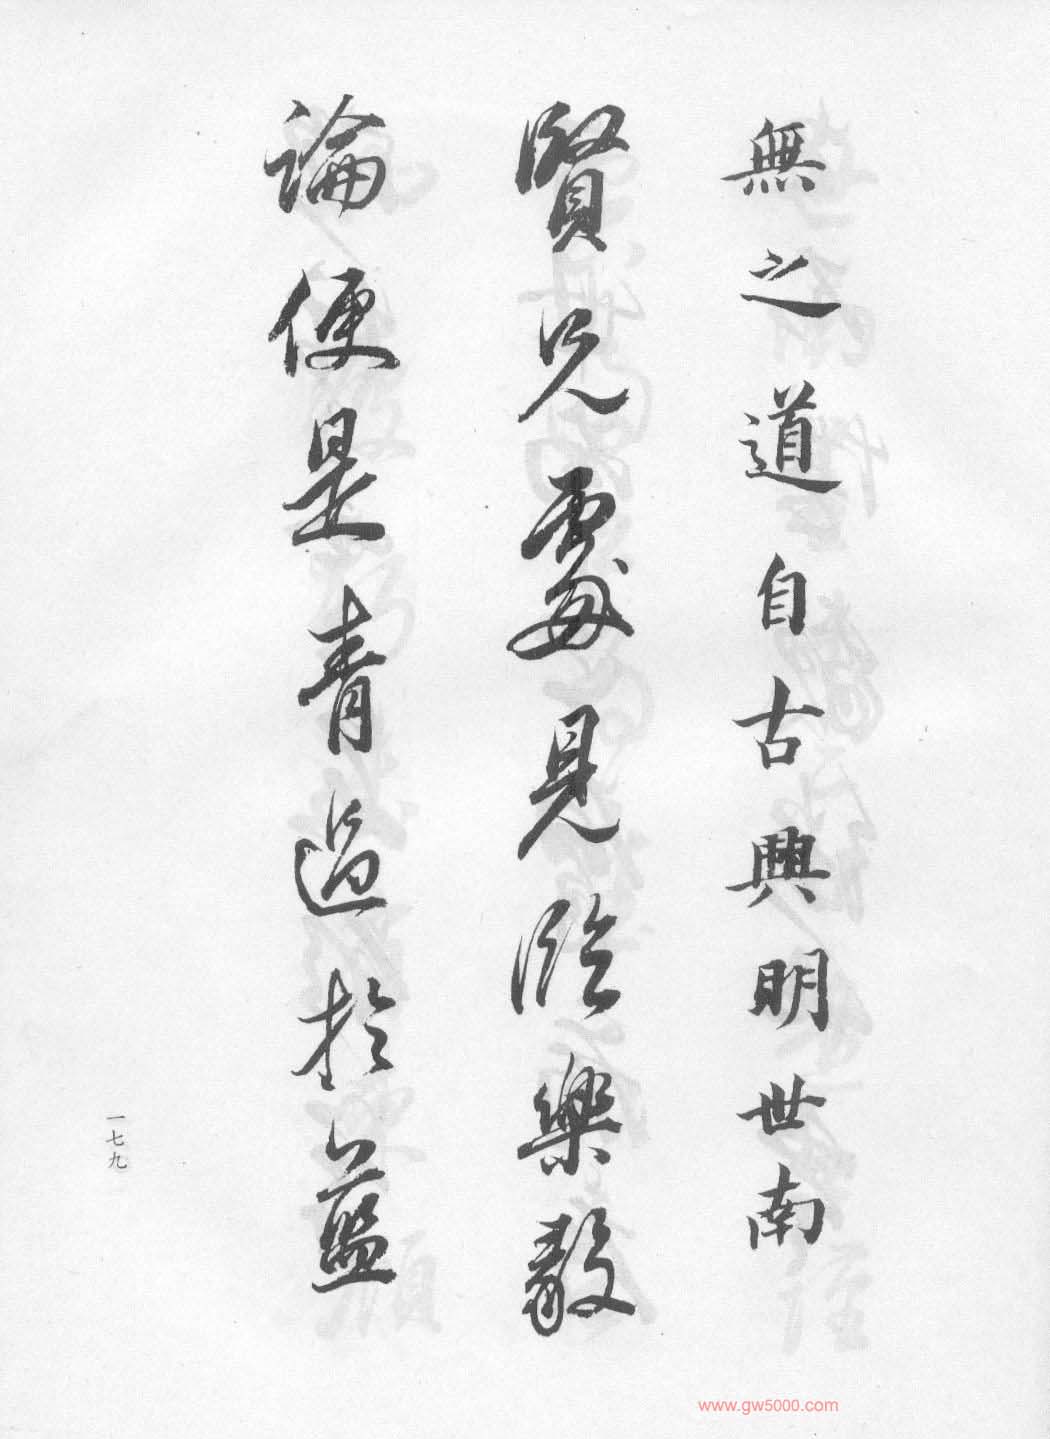 無之道自古興明世南
賢兄處見臨樂毅
論便是青過於藍
一七九
www.gw5000.com